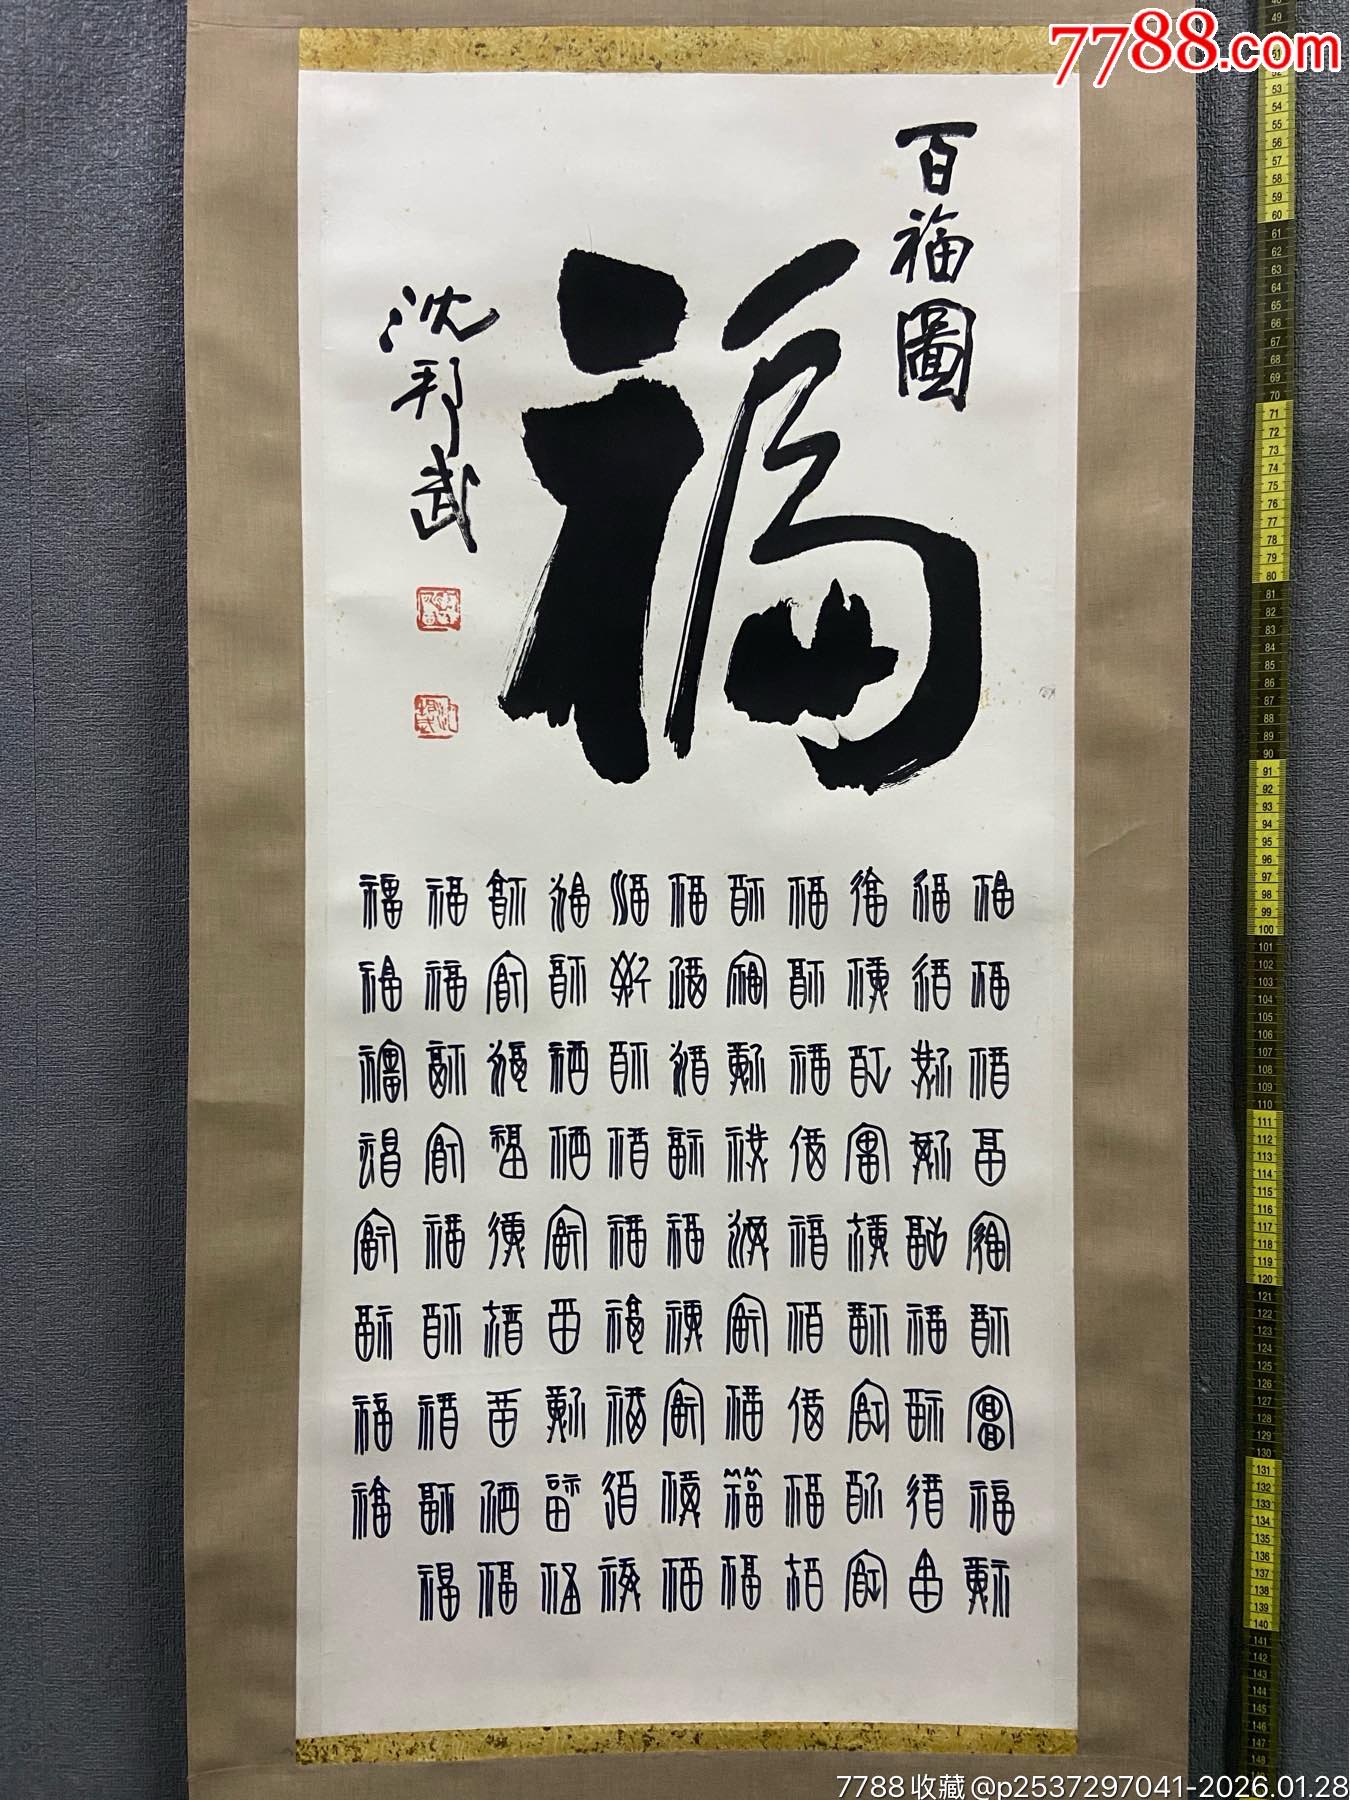 7788.com
百福圖
福
沈邦武
福福福福福福福福福
福福福福福福福福福
福福福福福福福福福
福福福福福福福福福
福福福福福福福福福
福福福福福福福福福
福福福福福福福福福
福福福福福福福福福
福福福福福福福福福
福福福福福福福福福
福福福福福福福福
7788收藏@p2537297041-2026.01.28